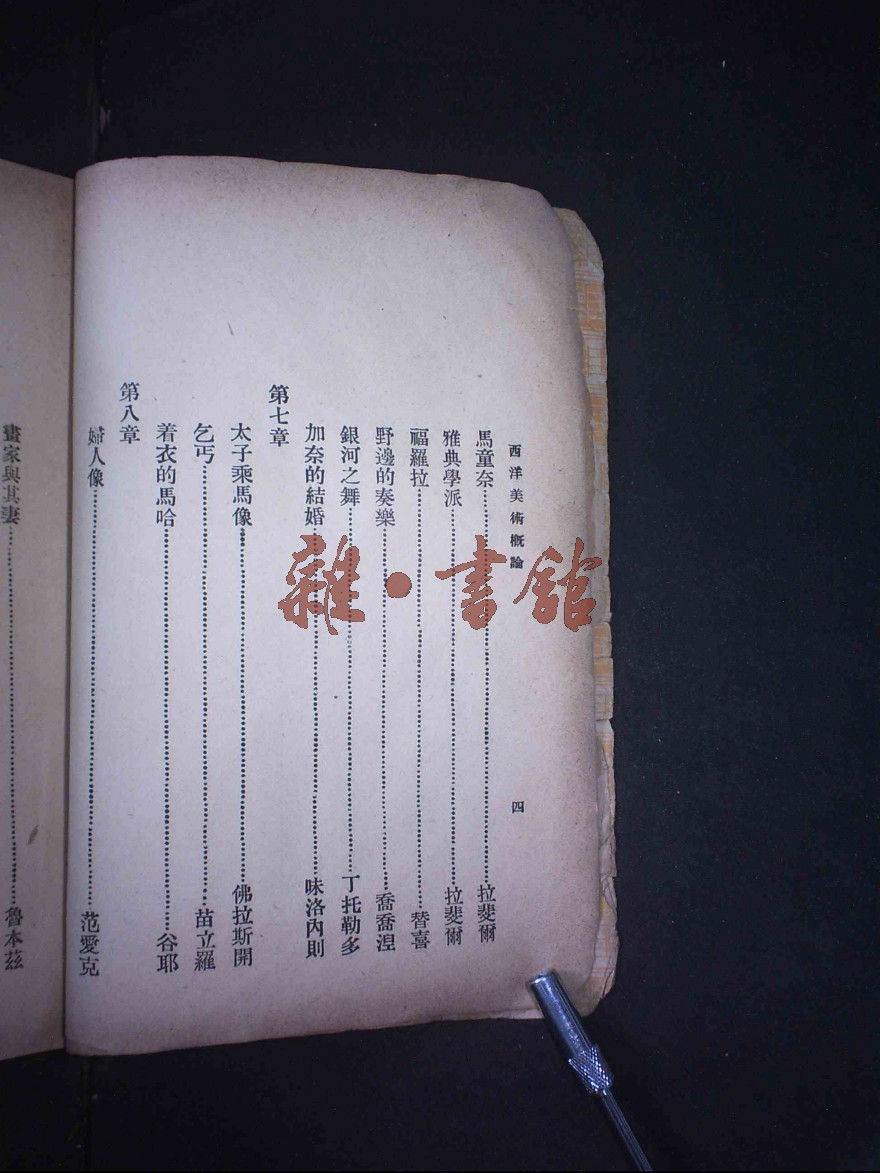 西洋美術概論 四
馬童奈……拉斐爾
雅典學派……拉斐爾
福羅拉……替喜
野邊的奏樂……喬喬涅
銀河之舞……丁托勒多
加奈的結婚……味洛內則
第七章
太子乘馬像……佛拉斯開
乞丐……苗立羅
着衣的馬哈……谷耶
第八章
婦人像……范愛克
畫家與其妻……魯本茲
雜·書館